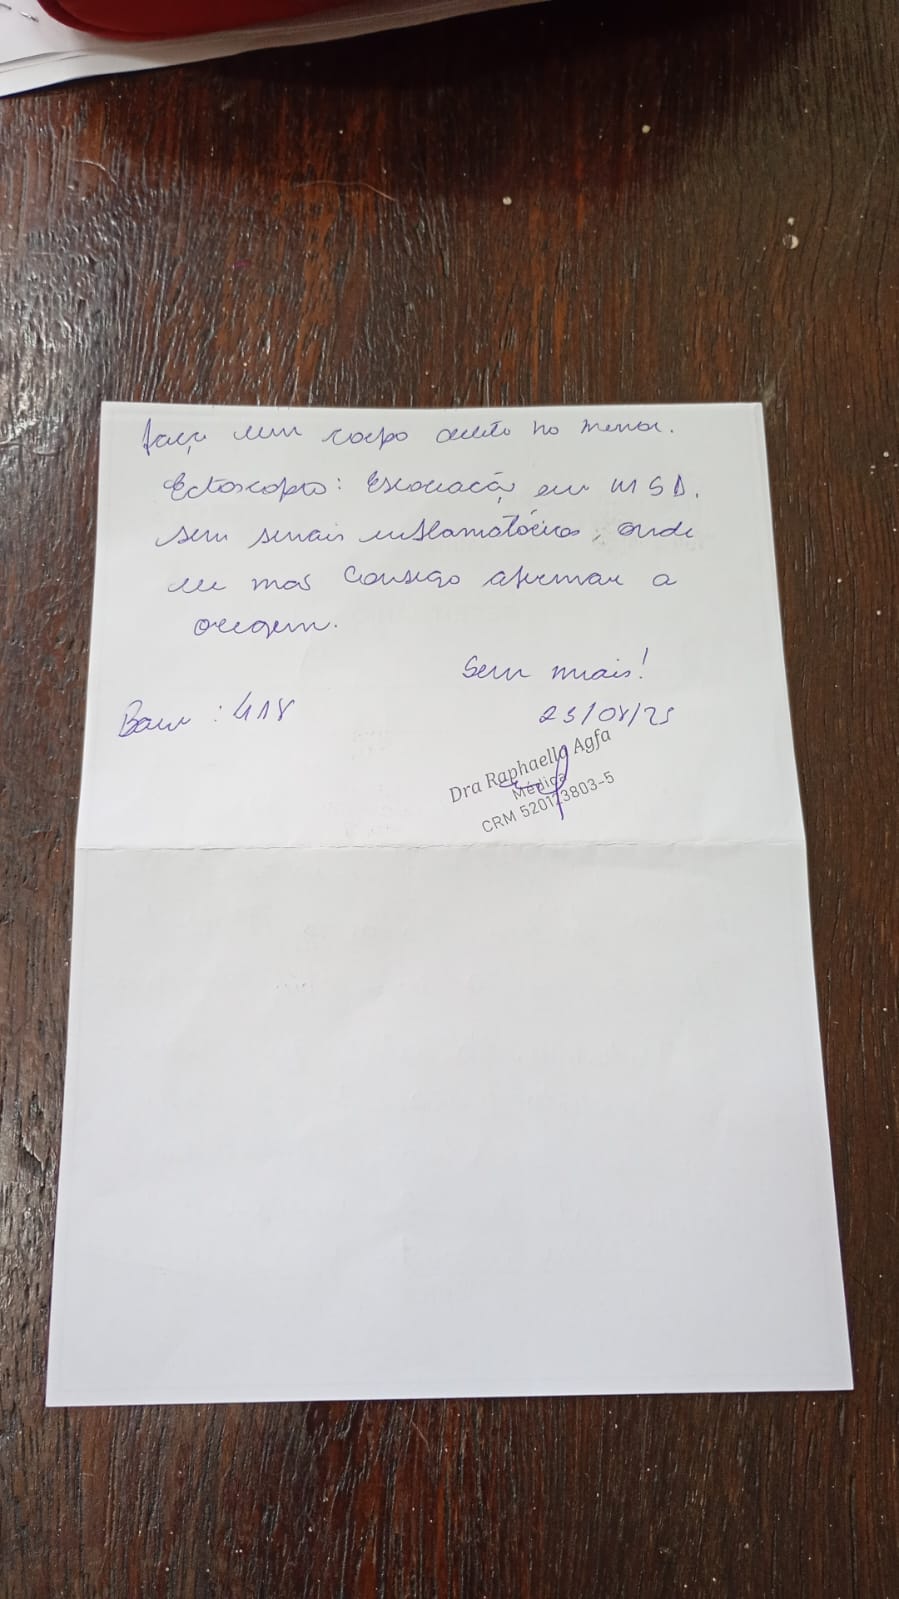 faça um corpo delito no menor.
Ectoscopia: Escoriação em MSD,
sem sinais inflamatórios, onde
eu não consigo afirmar a
origem.
Sem mais!
Bam: 418
23/08/25
Dra Raphaella Agfa
Médica
CRM 520123803-5